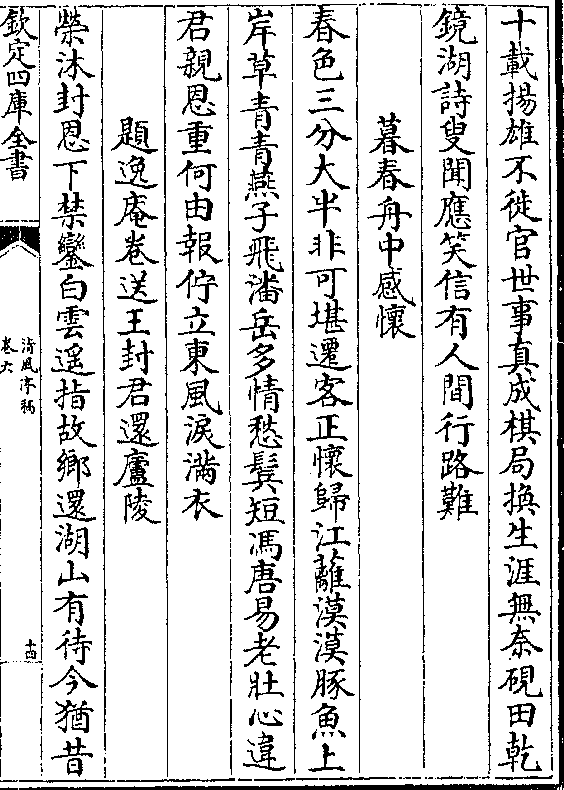 十載揚雄不徙官世事真成棋局換生涯無奈硯田乾
鏡湖詩叟聞應笑信有人間行路難
暮春舟中感懷
春色三分大半非可堪遷客正懷歸江蘺漠漠豚魚上
岸草青青燕子飛潘岳多情愁鬂短馮唐易老壯心違
君親恩重何由報佇立東風淚滿衣
題逸庵卷送王封君還廬陵
榮沐封恩下禁鑾白雲遥指故鄉還湖山有待今猶昔
欽定四庫全書
清風亭稿
卷六
十四